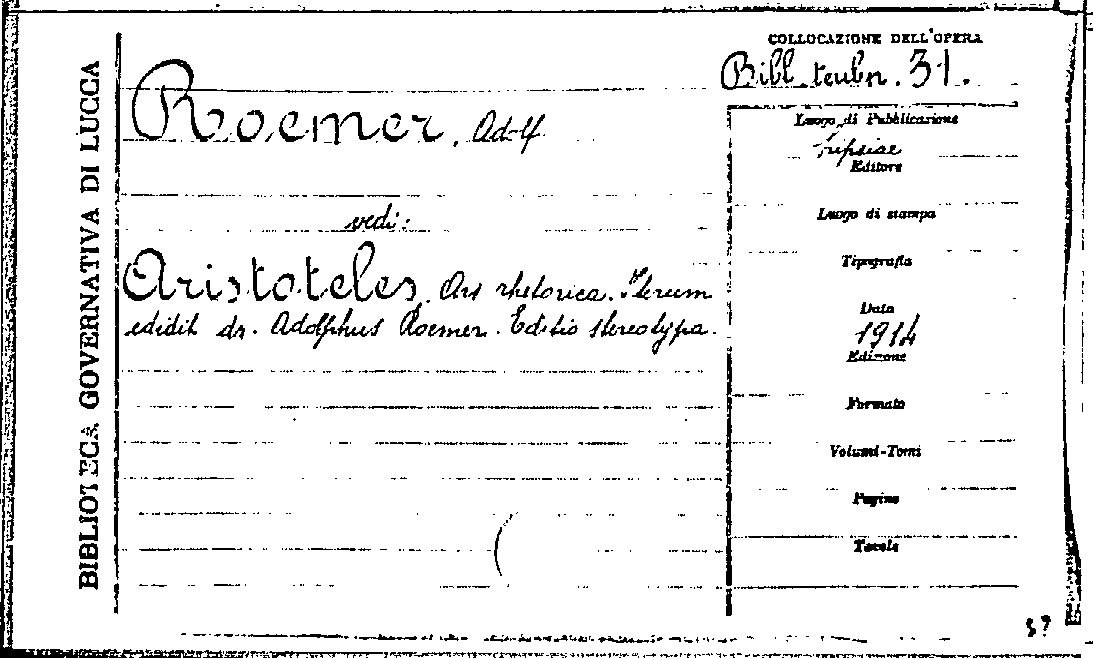 BIBLIOTECA GOVERNATIVA DI LUCCA
COLLOCAZIONE DELL'OPERA
Bibl. teubn. 31.
Roemer, Adolf
vedi:
Aristoteles, Ars rhetorica. Iterum
edidit dr. Adolphus Roemer. Editio stereotypa.
Luogo di Pubblicazione
Lipsiae
Editore
Luogo di stampa
Tipografia
Data
1914
Edizione
Formato
Volumi-Tomi
Pagine
Tavole